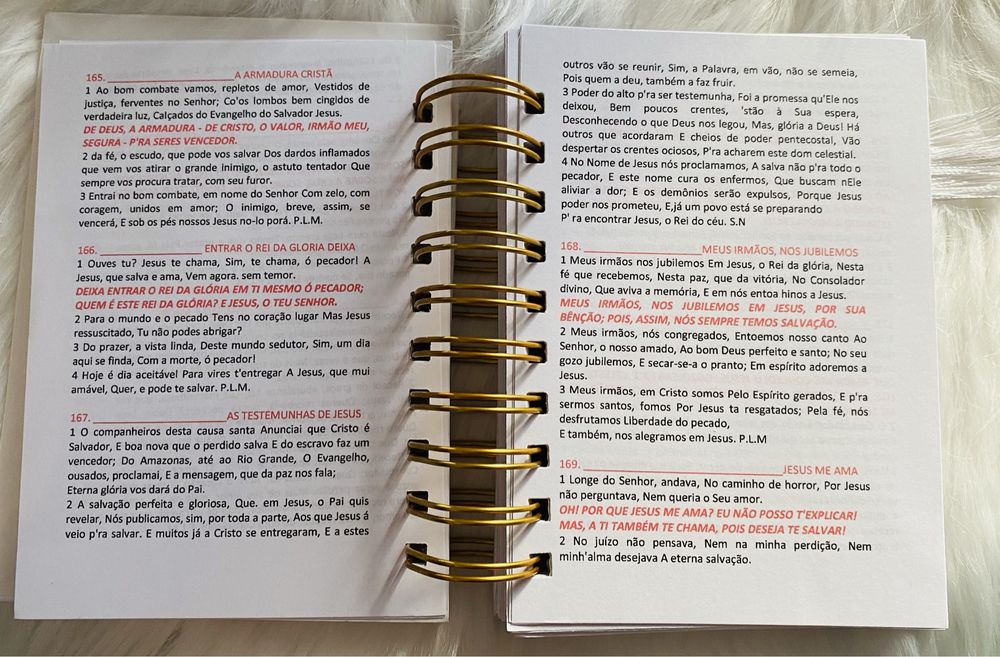 165. ____________________A ARMADURA CRISTÃ
1 Ao bom combate vamos, repletos de amor, Vestidos de
justiça, ferventes no Senhor; Co'os lombos bem cingidos de
verdadeira luz, Calçados do Evangelho do Salvador Jesus.
DE DEUS, A ARMADURA - DE CRISTO, O VALOR, IRMÃO MEU,
SEGURA - P'RA SERES VENCEDOR.
2 da fé, o escudo, que pode vos salvar Dos dardos inflamados
que vem vos atirar o grande inimigo, o astuto tentador Que
sempre vos procura tratar, com seu furor.
3 Entrai no bom combate, em nome do Senhor Com zelo, com
coragem, unidos em amor; O inimigo, breve, assim, se
vencerá, E sob os pés nossos Jesus no-lo porá. P.L.M.
166. ________________ ENTRAR O REI DA GLORIA DEIXA
1 Ouves tu? Jesus te chama, Sim, te chama, ó pecador! A
Jesus, que salva e ama, Vem agora. sem temor.
DEIXA ENTRAR O REI DA GLÓRIA EM TI MESMO Ó PECADOR;
QUEM É ESTE REI DA GLÓRIA? E JESUS, O TEU SENHOR.
2 Para o mundo e o pecado Tens no coração lugar Mas Jesus
ressuscitado, Tu não podes abrigar?
3 Do prazer, a vista linda, Deste mundo sedutor, Sim, um dia
aqui se finda, Com a morte, ó pecador!
4 Hoje é dia aceitável Para vires t'entregar A Jesus, que mui
amável, Quer, e pode te salvar. P.L.M.
167. ______________________AS TESTEMUNHAS DE JESUS
1 O companheiros desta causa santa Anunciai que Cristo é
Salvador, E boa nova que o perdido salva E do escravo faz um
vencedor; Do Amazonas, até ao Rio Grande, O Evangelho,
ousados, proclamai, E a mensagem, que da paz nos fala;
Eterna glória vos dará do Pai.
2 A salvação perfeita e gloriosa, Que. em Jesus, o Pai quis
revelar, Nós publicamos, sim, por toda a parte, Aos que Jesus á
veio p'ra salvar. E muitos já a Cristo se entregaram, E a estes
outros vão se reunir, Sim, a Palavra, em vão, não se semeia,
Pois quem a deu, também a faz fruir.
3 Poder do alto p'ra ser testemunha, Foi a promessa qu'Ele nos
deixou, Bem poucos crentes, 'stão à Sua espera,
Desconhecendo o que Deus nos legou, Mas, glória a Deus! Há
outros que acordaram E cheios de poder pentecostal, Vão
despertar os crentes ociosos, P'ra acharem este dom celestial.
4 No Nome de Jesus nós proclamamos, A salva não p'ra todo o
pecador, E este nome cura os enfermos, Que buscam nEle
aliviar a dor; E os demônios serão expulsos, Porque Jesus
poder nos prometeu, E,já um povo está se preparando
P' ra encontrar Jesus, o Rei do céu. S.N
168. ___________________MEUS IRMÃOS, NOS JUBILEMOS
1 Meus irmãos nos jubilemos Em Jesus, o Rei da glória, Nesta
fé que recebemos, Nesta paz, que da vitória, No Consolador
divino, Que aviva a memória, E em nós entoa hinos a Jesus.
MEUS IRMÃOS, NOS JUBILEMOS EM JESUS, POR SUA
BÊNÇÃO; POIS, ASSIM, NÓS SEMPRE TEMOS SALVAÇÃO.
2 Meus irmãos, nós congregados, Entoemos nosso canto Ao
Senhor, o nosso amado, Ao bom Deus perfeito e santo; No seu
gozo jubilemos, E secar-se-a o pranto; Em espírito adoremos a
Jesus.
3 Meus irmãos, em Cristo somos Pelo Espírito gerados, E p'ra
sermos santos, fomos Por Jesus ta resgatados; Pela fé, nós
desfrutamos Liberdade do pecado,
E também, nos alegramos em Jesus. P.L.M
169. ________________________________JESUS ME AMA
1 Longe do Senhor, andava, No caminho de horror, Por Jesus
não perguntava, Nem queria o Seu amor.
OH! POR QUE JESUS ME AMA? EU NÃO POSSO T'EXPLICAR!
MAS, A TI TAMBÉM TE CHAMA, POIS DESEJA TE SALVAR!
2 No juízo não pensava, Nem na minha perdição, Nem
minh'alma desejava A eterna salvação.